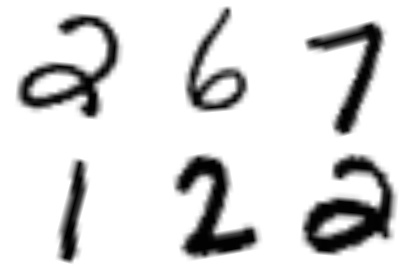 2 6 7
1 2 2